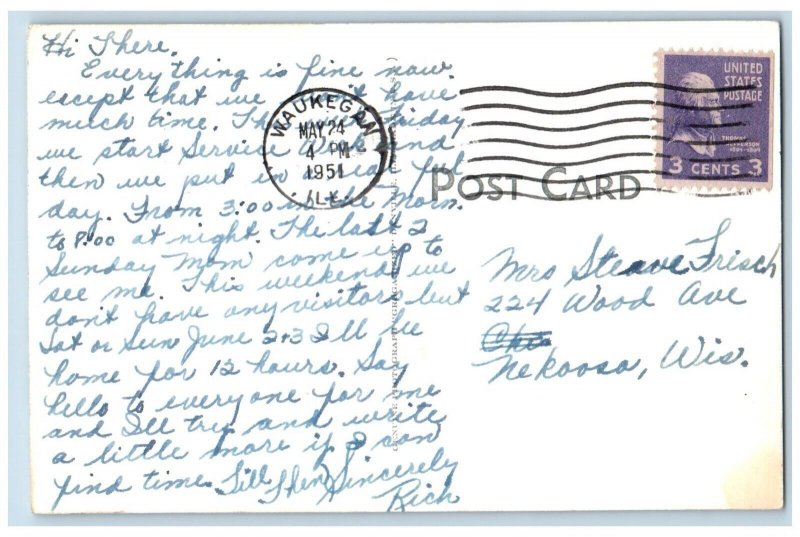 Hi There.
Everything is fine now.
except that we don't have
much time. Friday
we start Service Week and
then we put in a real ful
day. From 3:00 in the Morn.
to 8:00 at night. The last 2
Sunday Mom come up to
see me. This weekend we
don't have any visitors but
Sat or Sun June 2+3 I'll be
home for 12 hours. Say
hello to everyone for me
and I'll try and write
a little more if I can
find time. Till Then Sincerely
Rich
WAUKEGAN
MAY 24
4 PM
1951
ILL.
UNITED
STATES
POSTAGE
THOMAS
JEFFERSON
1801-1809
3 CENTS 3
POST CARD
Mrs Steave Frisch
224 Wood Ave
Nekoosa, Wis.